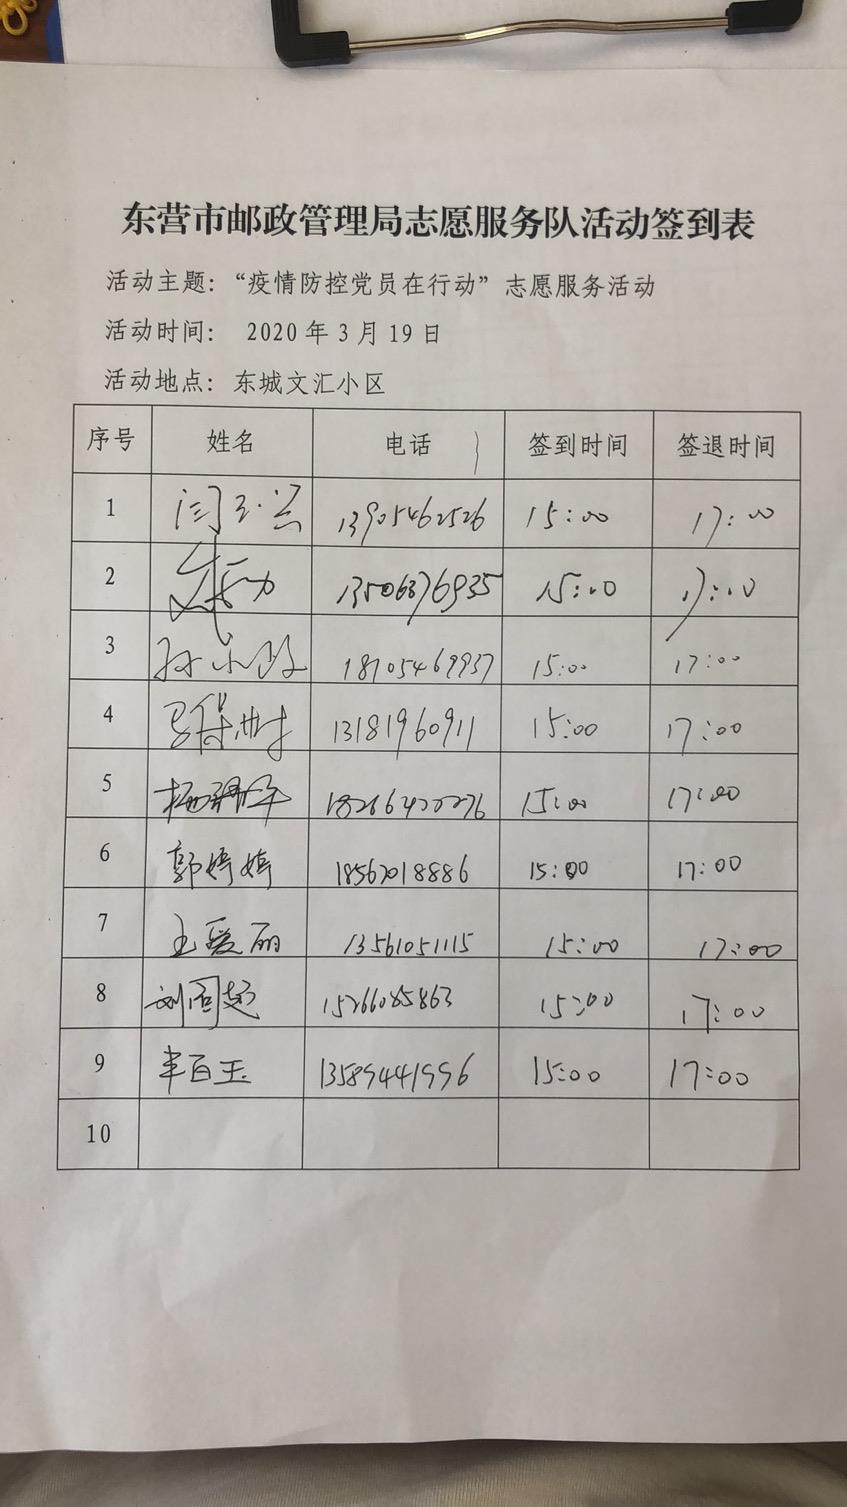 东营市邮政管理局志愿服务队活动签到表
活动主题：“疫情防控党员在行动”志愿服务活动
活动时间： 2020 年 3 月 19 日
活动地点：东城文汇小区
序号 姓名 电话 签到时间 签退时间
1 13905462526 15:00 17:00
2 13506376935 15:00 17:00
3 15:00 17:00
4 13181960911 15:00 17:00
5 15:00 17:00
6 郭婷婷 18562018886 15:00 17:00
7 王爱丽 13561051115 15:00 17:00
8 15266085863 15:00 17:00
9 13589441996 15:00 17:00
10